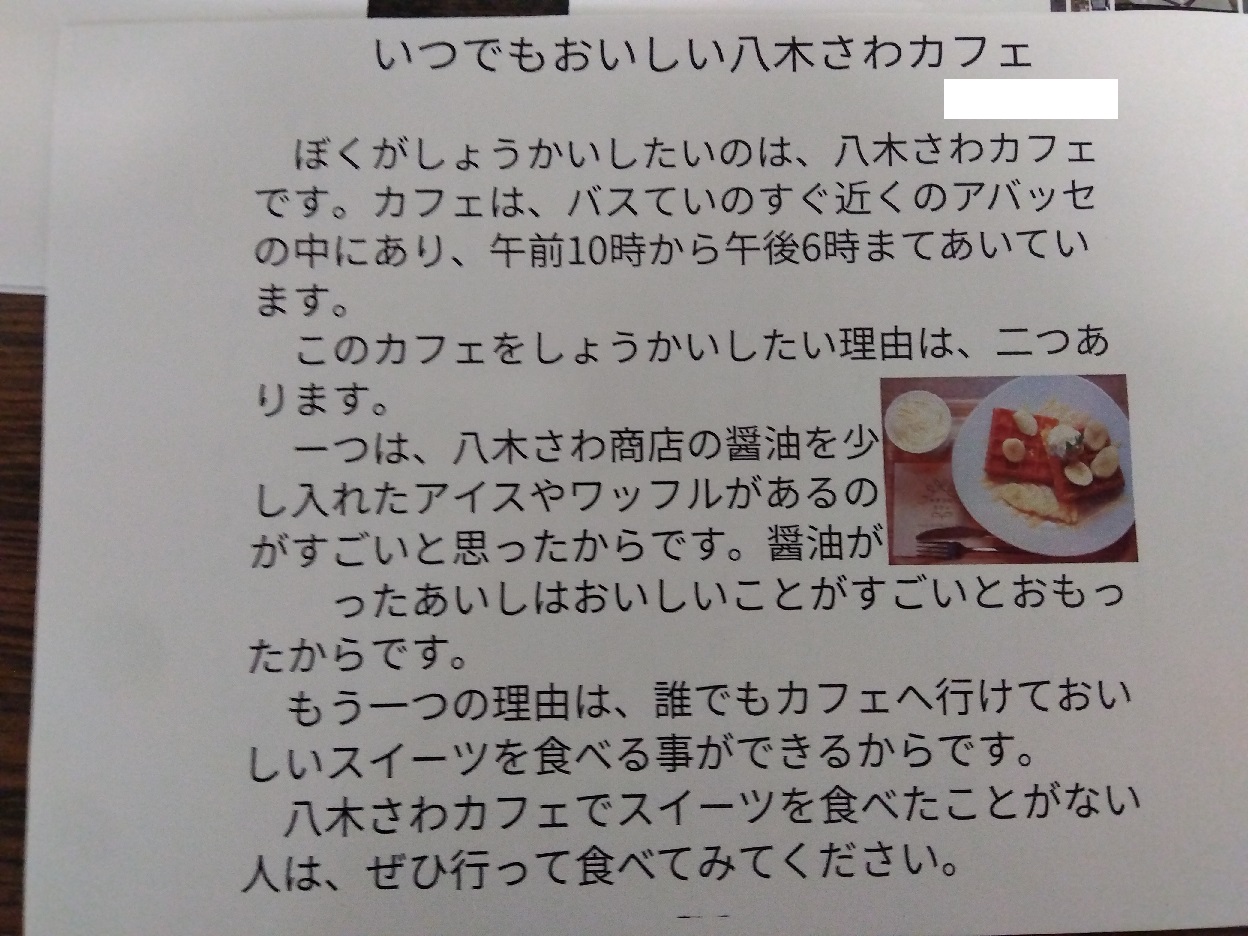 いつでもおいしい八木さわカフェ
ぼくがしょうかいしたいのは、八木さわカフェ
です。カフェは、バスていのすぐ近くのアバッセ
の中にあり、午前10時から午後6時まてあいてい
ます。
このカフェをしょうかいしたい理由は、二つあ
ります。
一つは、八木さわ商店の醤油を少
し入れたアイスやワッフルがあるの
がすごいと思ったからです。醤油が
ったあいしはおいしいことがすごいとおもっ
たからです。
もう一つの理由は、誰でもカフェへ行けておい
しいスイーツを食べる事ができるからです。
八木さわカフェでスイーツを食べたことがない
人は、ぜひ行って食べてみてください。